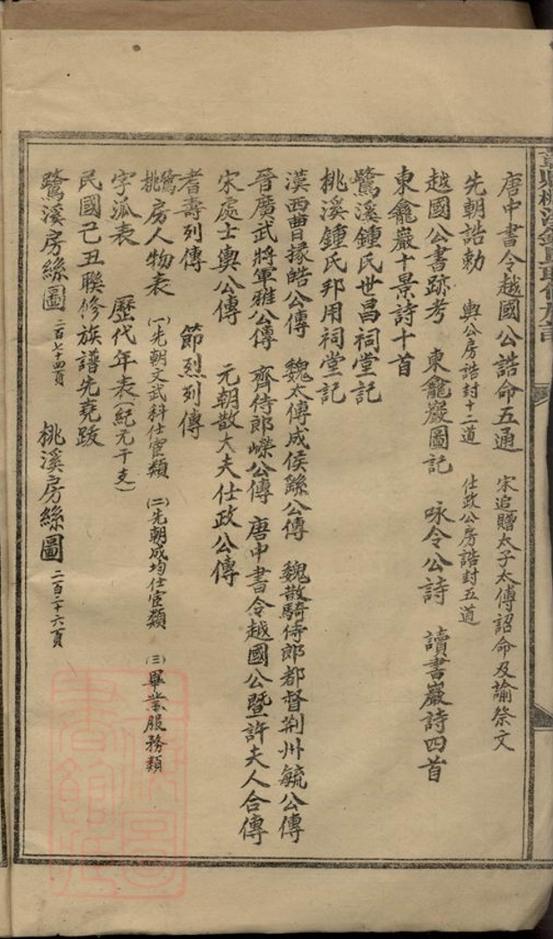 唐中書令越國公誥命五通 宋追贈太子太傅詔命及諭祭文
先朝誥勅 輿公房誥封十二道 仕政公房誥封五道
越國公書跡考 東龕巖圖記 咏令公詩 讀書巖詩四首
東龕巖十景詩十首
鷺溪鍾氏世昌祠堂記
桃溪鍾氏邦用祠堂記
漢西曹掾皓公傳 魏太傅成侯繇公傳 魏散騎侍郎都督荆州毓公傳
晉廣武將軍雅公傳 齊侍郎嶸公傳 唐中書令越國公暨許夫人合傳
宋處士輿公傳 元朝散大夫仕政公傳
耆壽列傳 節烈列傳
鷺桃房人物表 (一)先朝文武科仕宦類 (二)先朝成均仕宦類 (三)畢業服務類
字派表 歷代年表(紀元干支)
民國己丑聯修族譜先堯跋
鷺溪房絲圖 二百七十四頁 桃溪房絲圖 二百二十六頁